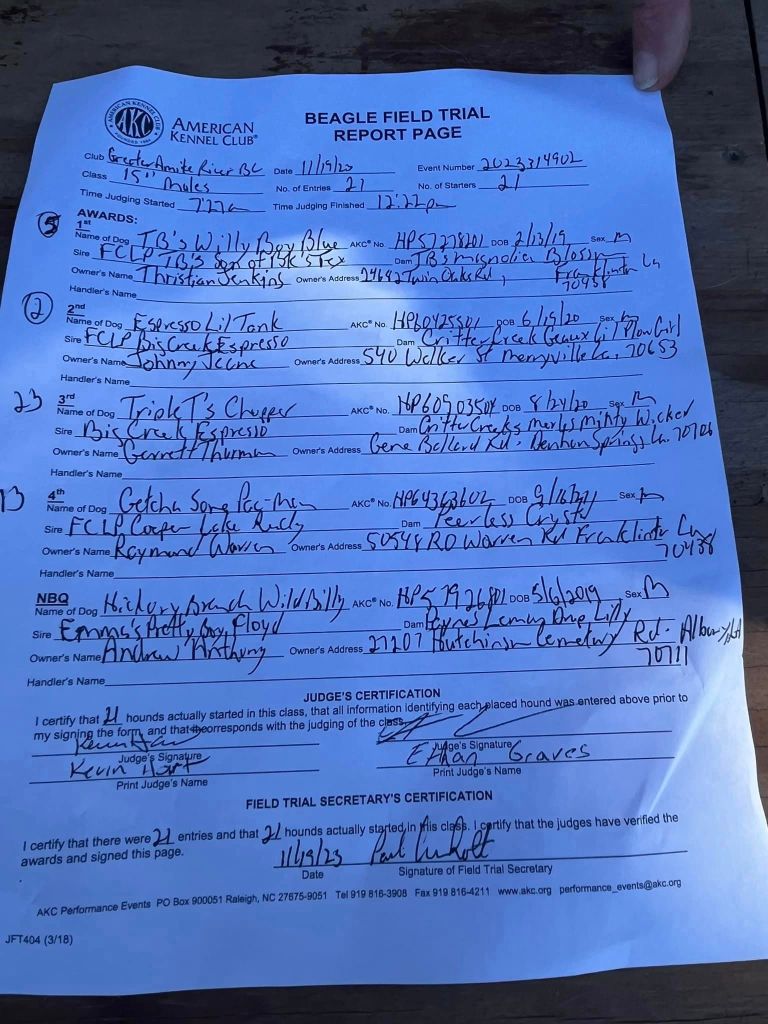 AMERICAN KENNEL CLUB
AKC
FOUNDED 1884
AMERICAN
KENNEL CLUB®
BEAGLE FIELD TRIAL
REPORT PAGE
Club Greater Amite River BC Date 11/19/23 Event Number 2023314902
Class 15" Males No. of Entries 21 No. of Starters 21
Time Judging Started 7:27a Time Judging Finished 12:22pm
AWARDS:
5 1st
Name of Dog TB's Willy Boy Blue AKC® No. HP57278201 DOB 2/13/19 Sex M
Sire FCLP TB's Son of BK's Tex Dam TB's Magnolia Blossom
Owner's Name Christian Jenkins Owner's Address 24682 Twin Oaks Rd, Franklinton La
70438
Handler's Name
2 2nd
Name of Dog Espresso Lil Tank AKC® No. HP60425501 DOB 6/19/20 Sex M
Sire FCLP Big Creek Espresso Dam Critter Creek Geaux Lil Plow Girl
Owner's Name Johnny Owner's Address 540 Welker St Merryville La. 70653
Handler's Name
23 3rd
Name of Dog Triple T's Chopper AKC® No. DOB 8/24/20 Sex M
Sire Big Creek Espresso Dam Critter Creeks Merlus Minty Wicker
Owner's Name Garrett Thurman Owner's Address Gene Ballard Rd. Denham Springs La. 70706
Handler's Name
13 4th
Name of Dog Getcha Some Pac-Man AKC® No. HP64363602 DOB Sex M
Sire FCLP Cooper Lake Rudy Dam Peerless Crystal
Owner's Name Raymond Warren Owner's Address 50548 RO Warren Rd Franklinton La
70438
Handler's Name
NBQ
Name of Dog Hickory Branch Wild Billy AKC® No. HP57926801 DOB 5/6/2019 Sex M
Sire Emma's Pretty Boy Floyd Dam Paynes Lemon Drop Lilly
Owner's Name Andrew Anthony Owner's Address 27207 Hutchinson Cemetery Rd. Albany, LA
70711
Handler's Name
JUDGE'S CERTIFICATION
I certify that 21 hounds actually started in this class, that all information identifying each placed hound was entered above prior to
my signing the form, and that it corresponds with the judging of the class.
Judge's Signature Judge's Signature
Kevin Hart Ethan Graves
Print Judge's Name Print Judge's Name
FIELD TRIAL SECRETARY'S CERTIFICATION
I certify that there were 21 entries and that 21 hounds actually started in this class. I certify that the judges have verified the
awards and signed this page.
11/19/23 Paul
Date Signature of Field Trial Secretary
AKC Performance Events PO Box 900051 Raleigh, NC 27675-9051 Tel 919 816-3908 Fax 919 816-4211 www.akc.org performance_events@akc.org
JFT404 (3/18)